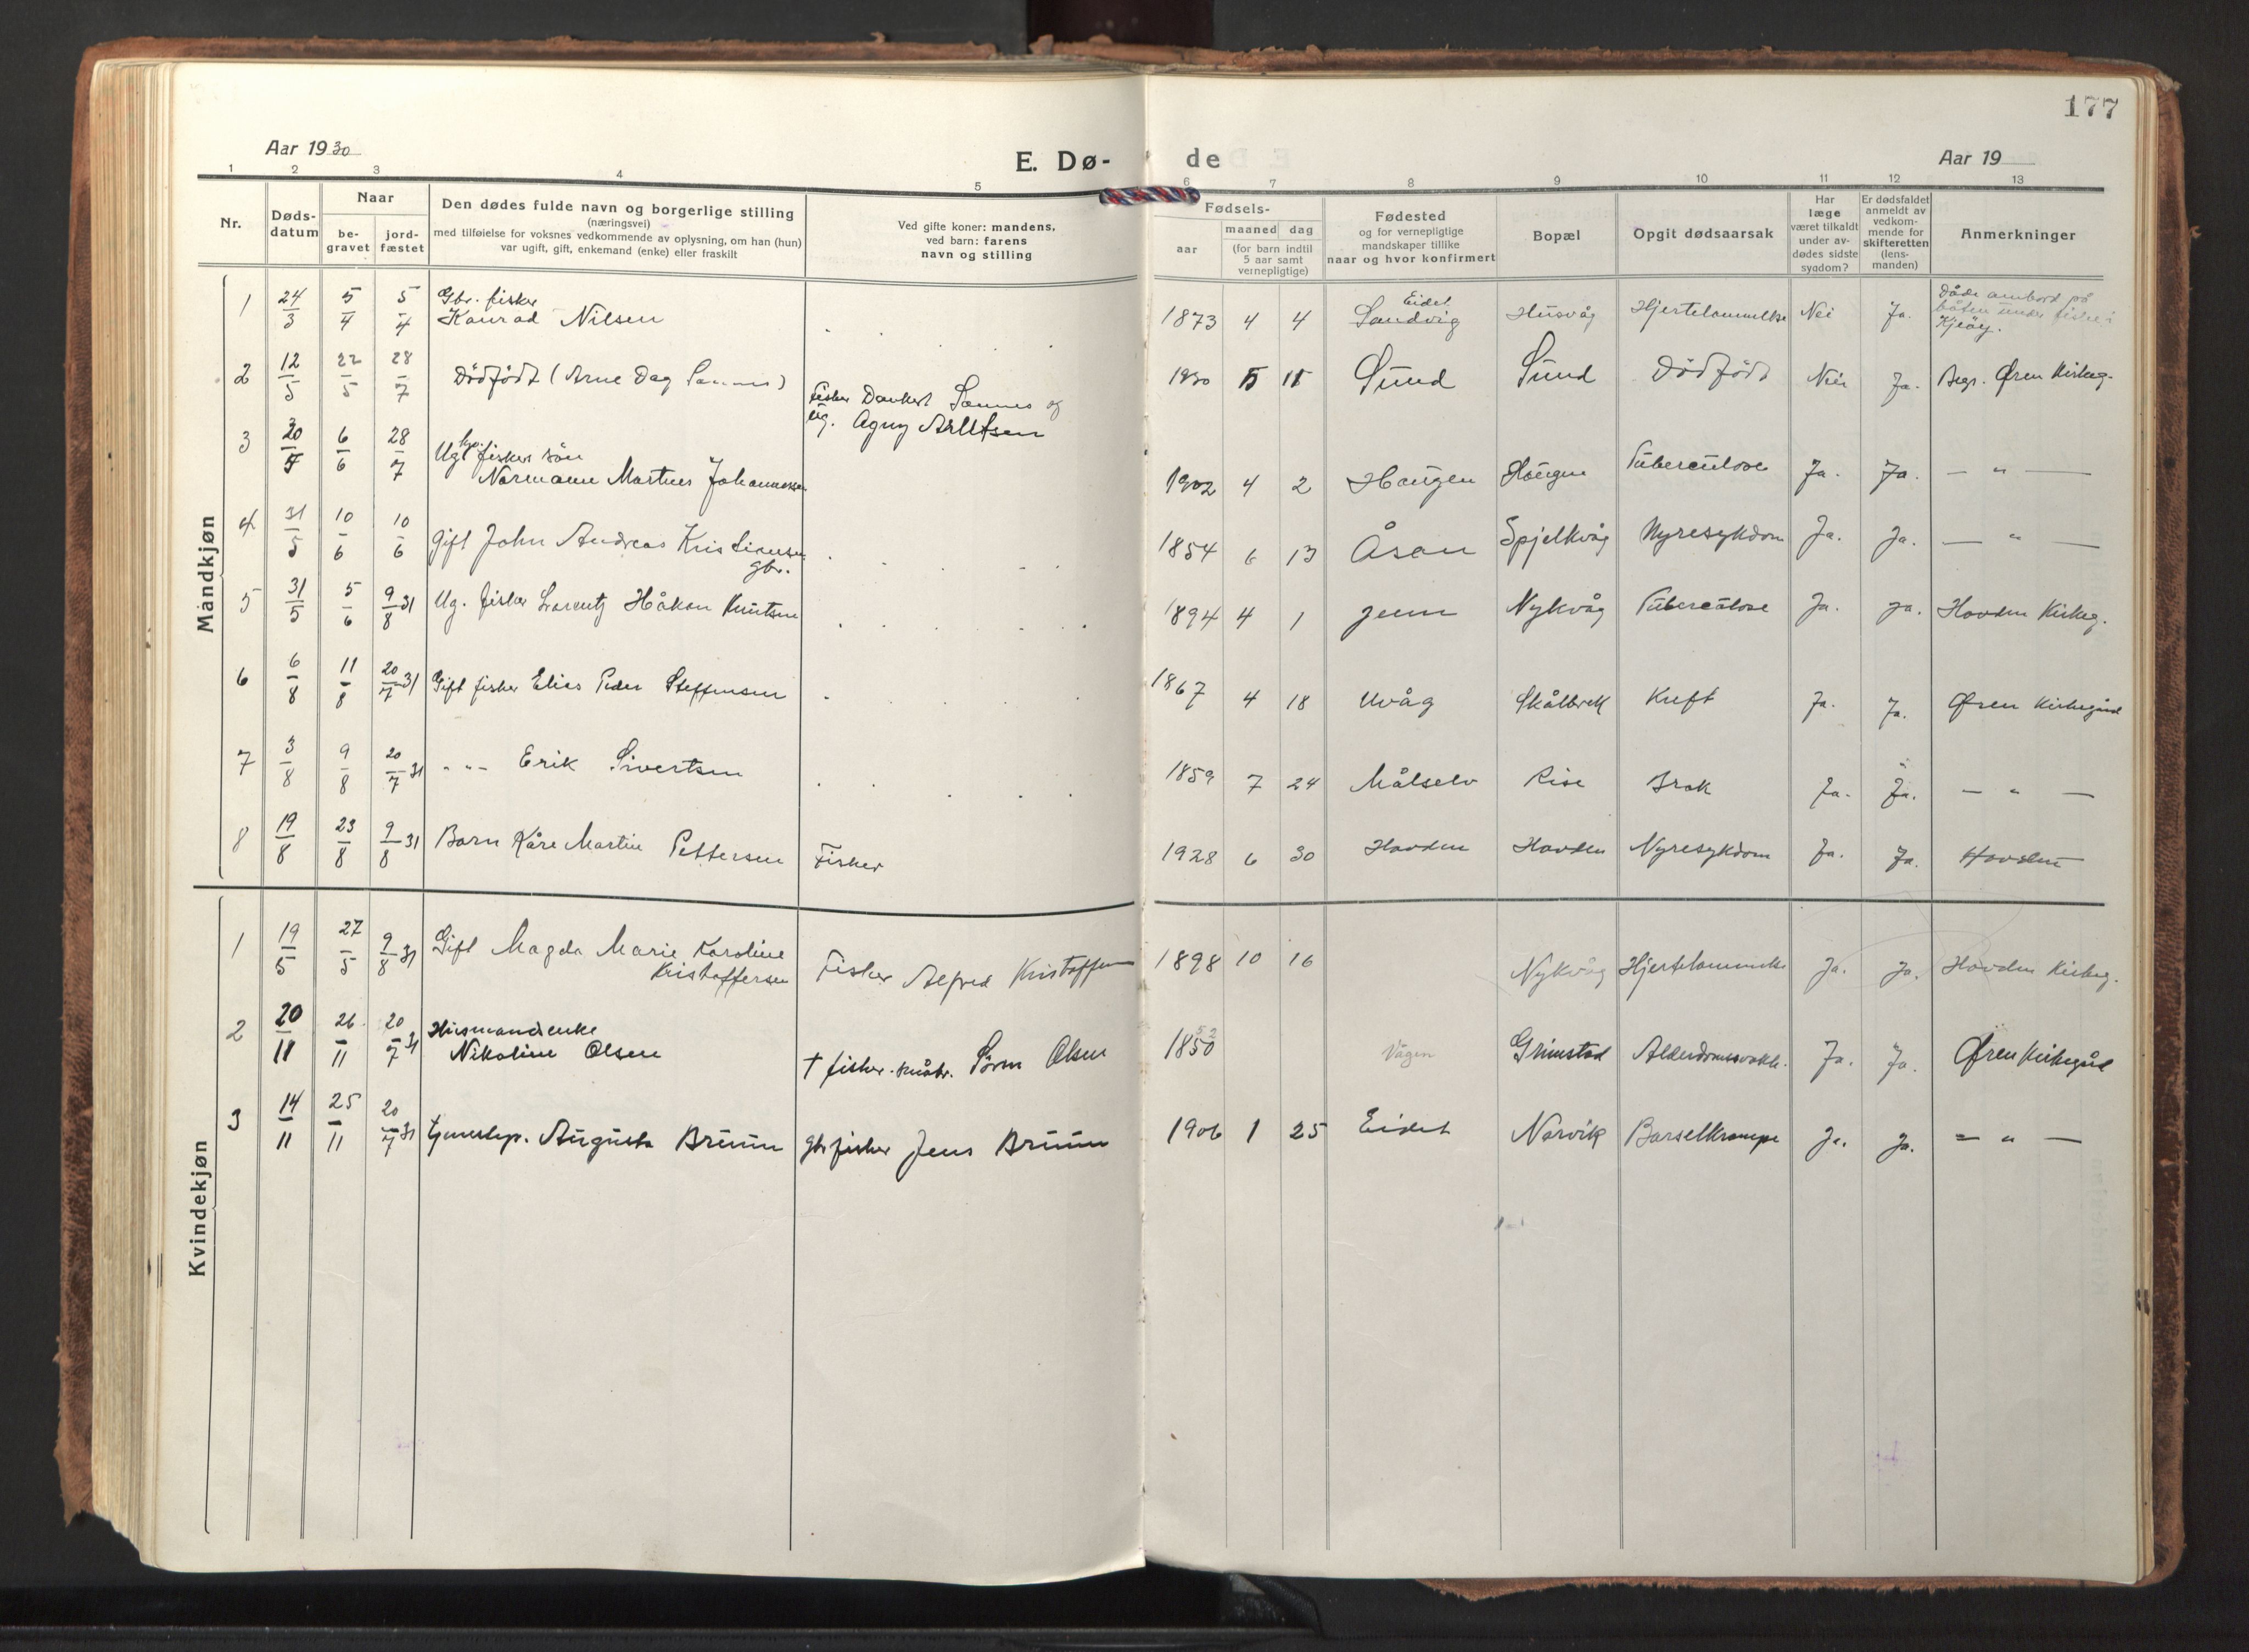 177
Aar 1930
E. Dø-
de
Aar 19
1 2 3 4 5 6 7 8 9 10 11 12 13
Nr.
Døds-
datum
Naar
be-
gravet
jord-
fæstet
Den dødes fulde navn og borgerlige stilling
(næringsvei)
med tilføielse for voksnes vedkommende av oplysning, om han (hun)
var ugift, gift, enkemand (enke) eller fraskilt
Ved gifte koner: mandens,
ved barn: farens
navn og stilling
Fødsels-
aar
maaned dag
(for barn indtil
5 aar samt
vernepligtige)
Fødested
og for vernepligtige
mandskaper tillike
naar og hvor konfirmert
Bopæl
Opgit dødsaarsak
Har
læge
været tilkaldt
under av-
dødes sidste
sygdom?
Er dødsfaldet
anmeldt av
vedkom-
mende for
skifteretten
(lens-
manden)
Anmerkninger
Mandkjøn
Gbr. fisker Eidet Døde ombord på
1 24/3 5/4 5/4 Konrad Nilsen 1873 4 4 Sandvig Husvåg Hjertelammelse Nei Ja. båten under fiske i
Kjeöy.
2 12/5 22/5 28/7 Dödfödt (Arne Dag Sannes) 1930 5 11 Sund Sund Dödfödt Nei Ja. Begr. Øren Kirkeg.
Fisker Dankert Sannes og
ug. Agny
3 20/5 6/6 28/7 Ugt fiskers sön
Normann Martines Johannessen 1902 4 2 Haugen Haugen Tuberculose Ja. Ja. — " —
4 31/5 10/6 10/6 Gift John Andreas Kristiansen 1854 6 13 Åsan Spjelkvåg Nyresykdom Ja. Ja. — " —
gbr.
5 31/5 5/6 9/8 31 Ug. fisker Lorentz Håkon Knutsen 1894 4 1 Nykvåg Tuberculose Ja. Ja. Hovden Kirkeg.
6 6/8 11/8 20/7 31 Gift fisker Elias Peder Steffensen 1867 4 18 Uvåg Skålbrek Kreft Ja. Ja. Øren Kirkegård
7 3/8 9/8 20/7 31 - " - Erik Sivertsen 1859 7 24 Målselv Rise Brok Ja. Ja. — " —
8 19/8 23/8 9/8 31 Barn Kåre Martin Pettersen Fisker 1928 6 30 Hovden Hovden Nyresykdom Ja. Ja. Hovden
Kvindekjøn
1 19/5 27/5 9/8 31 Gift Magda Marie Karoline
Kristoffersen Fisker Alfred Kristoffersen 1898 10 16 Nykvåg Hjertelammelse Ja. Ja. Hovden Kirkeg.
2 20/11 26/11 20/7 31 Husmandsenke
Nikoline Olsen † fisker. småbr. Sören Olsen 1850 52 Vågen Grimstad Alderdomssvakh. Ja. Ja. Øren Kirkegård
3 14/11 25/11 20/7 31 tjenestep. Augusta Bruun gbr fisker Jens Bruun 1906 1 25 Eidet Narvik Barselkrampe Ja. Ja. — " —